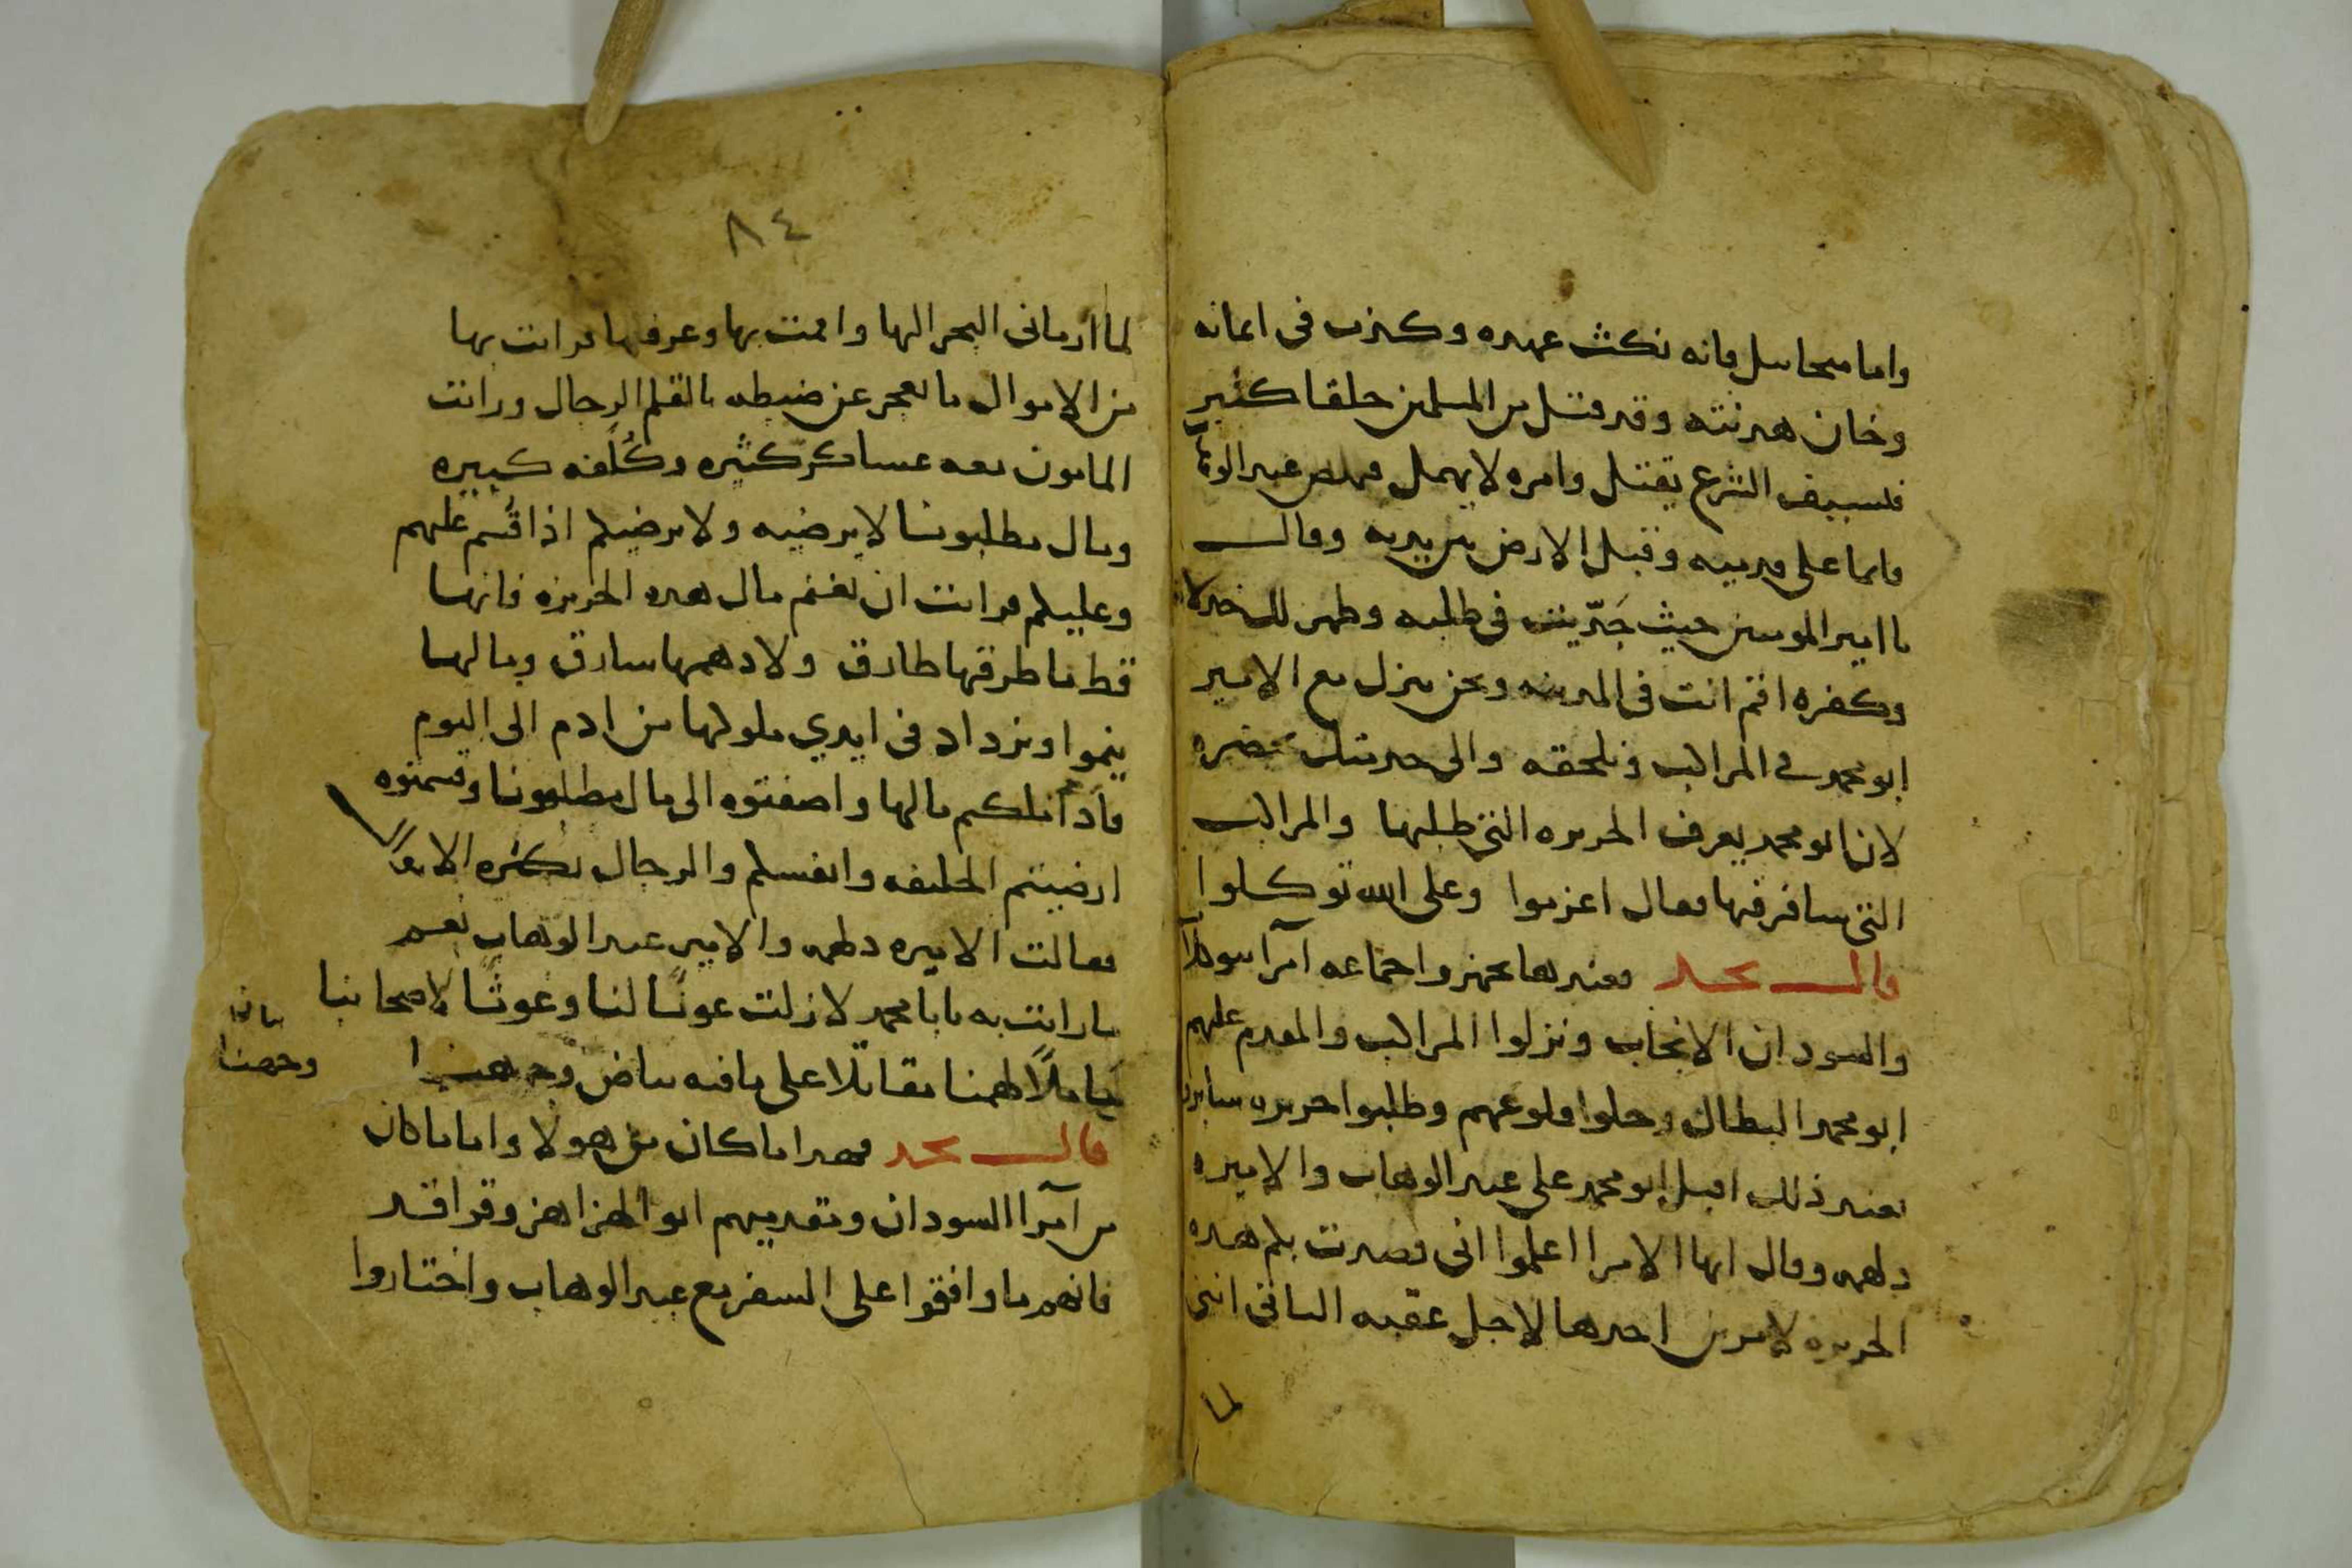 واما ميخاييل فانه نكث عهده وكذب في ايمانه
وخان هدنته وقد قتل من المسلمين خلقا كثير
فبسيف الشرع يقتل وامره لا يهمل فنهض عبد الوهاب
قايما على قدميه وقبل الارض بين يديه وقال
يا امير المومنين حيث جديت في طلبه وظهر لك
وكفره اقم انت في المدينه ونحن ننزل مع الامير
ابو محمد في المراكب ونلحقه والى حضرتك نحضره
لان ابو محمد يعرف الجزيره التي طلبها والمراكب
التي سافر فيها فقال اعزموا وعلى الله توكلوا
قال نجد فعندها تجهزوا جماعه امرا
والسودان الانجاب ونزلوا المراكب والمقدم عليهم
ابو محمد البطال وحلوا قلوعهم وطلبوا جزيره
فعند ذلك اقبل ابو محمد على عبد الوهاب والاميره
دلهمه وقال ايها الامرا اعلموا اني قصدت بكم هذه
الجزيره لامرين احدها لاجل عقبه الثاني انني
لما
٨٤
لما ارماني البحر اليها واقمت بها وعرفها فرايت بها
من الاموال ما يعجز عن ضبطه بالقلم الرجال ورايت
المامون معه عساكر كثيره وكلفه كبيره
ومال مطلبونا لا يرضيه ولا يرضيكم اذا قسم عليهم
وعليكم فرايت ان نغنم مال هذه الجزيره فانها
قط ما طرقها طارق ولا دهمها سارق ومالها
ينموا ويزداد في ايدي ملوكها من ادم الى اليوم
فاذا ملكتم مالها واضفتوه الى مال مطلبونا وقسمتوه
ارضيتم الخليفه وانفسكم والرجال بكثره الاموال
فقالت الاميره دلهمه والامير عبد الوهاب نعم
ما رايت به يا با محمد لازلت عونًا لنا وغوثًا لاصحابنا
حاملًا لهمنا مقاتلا على ما فيه بياض وجهنا
وجهنا
قال نجد فهذا ما كان من هولا واما ما كان
من امرا السودان ومقدميهم ابو الهزاهز وقراقد
فانهم ما وافقوا على السفر مع عبد الوهاب واختاروا